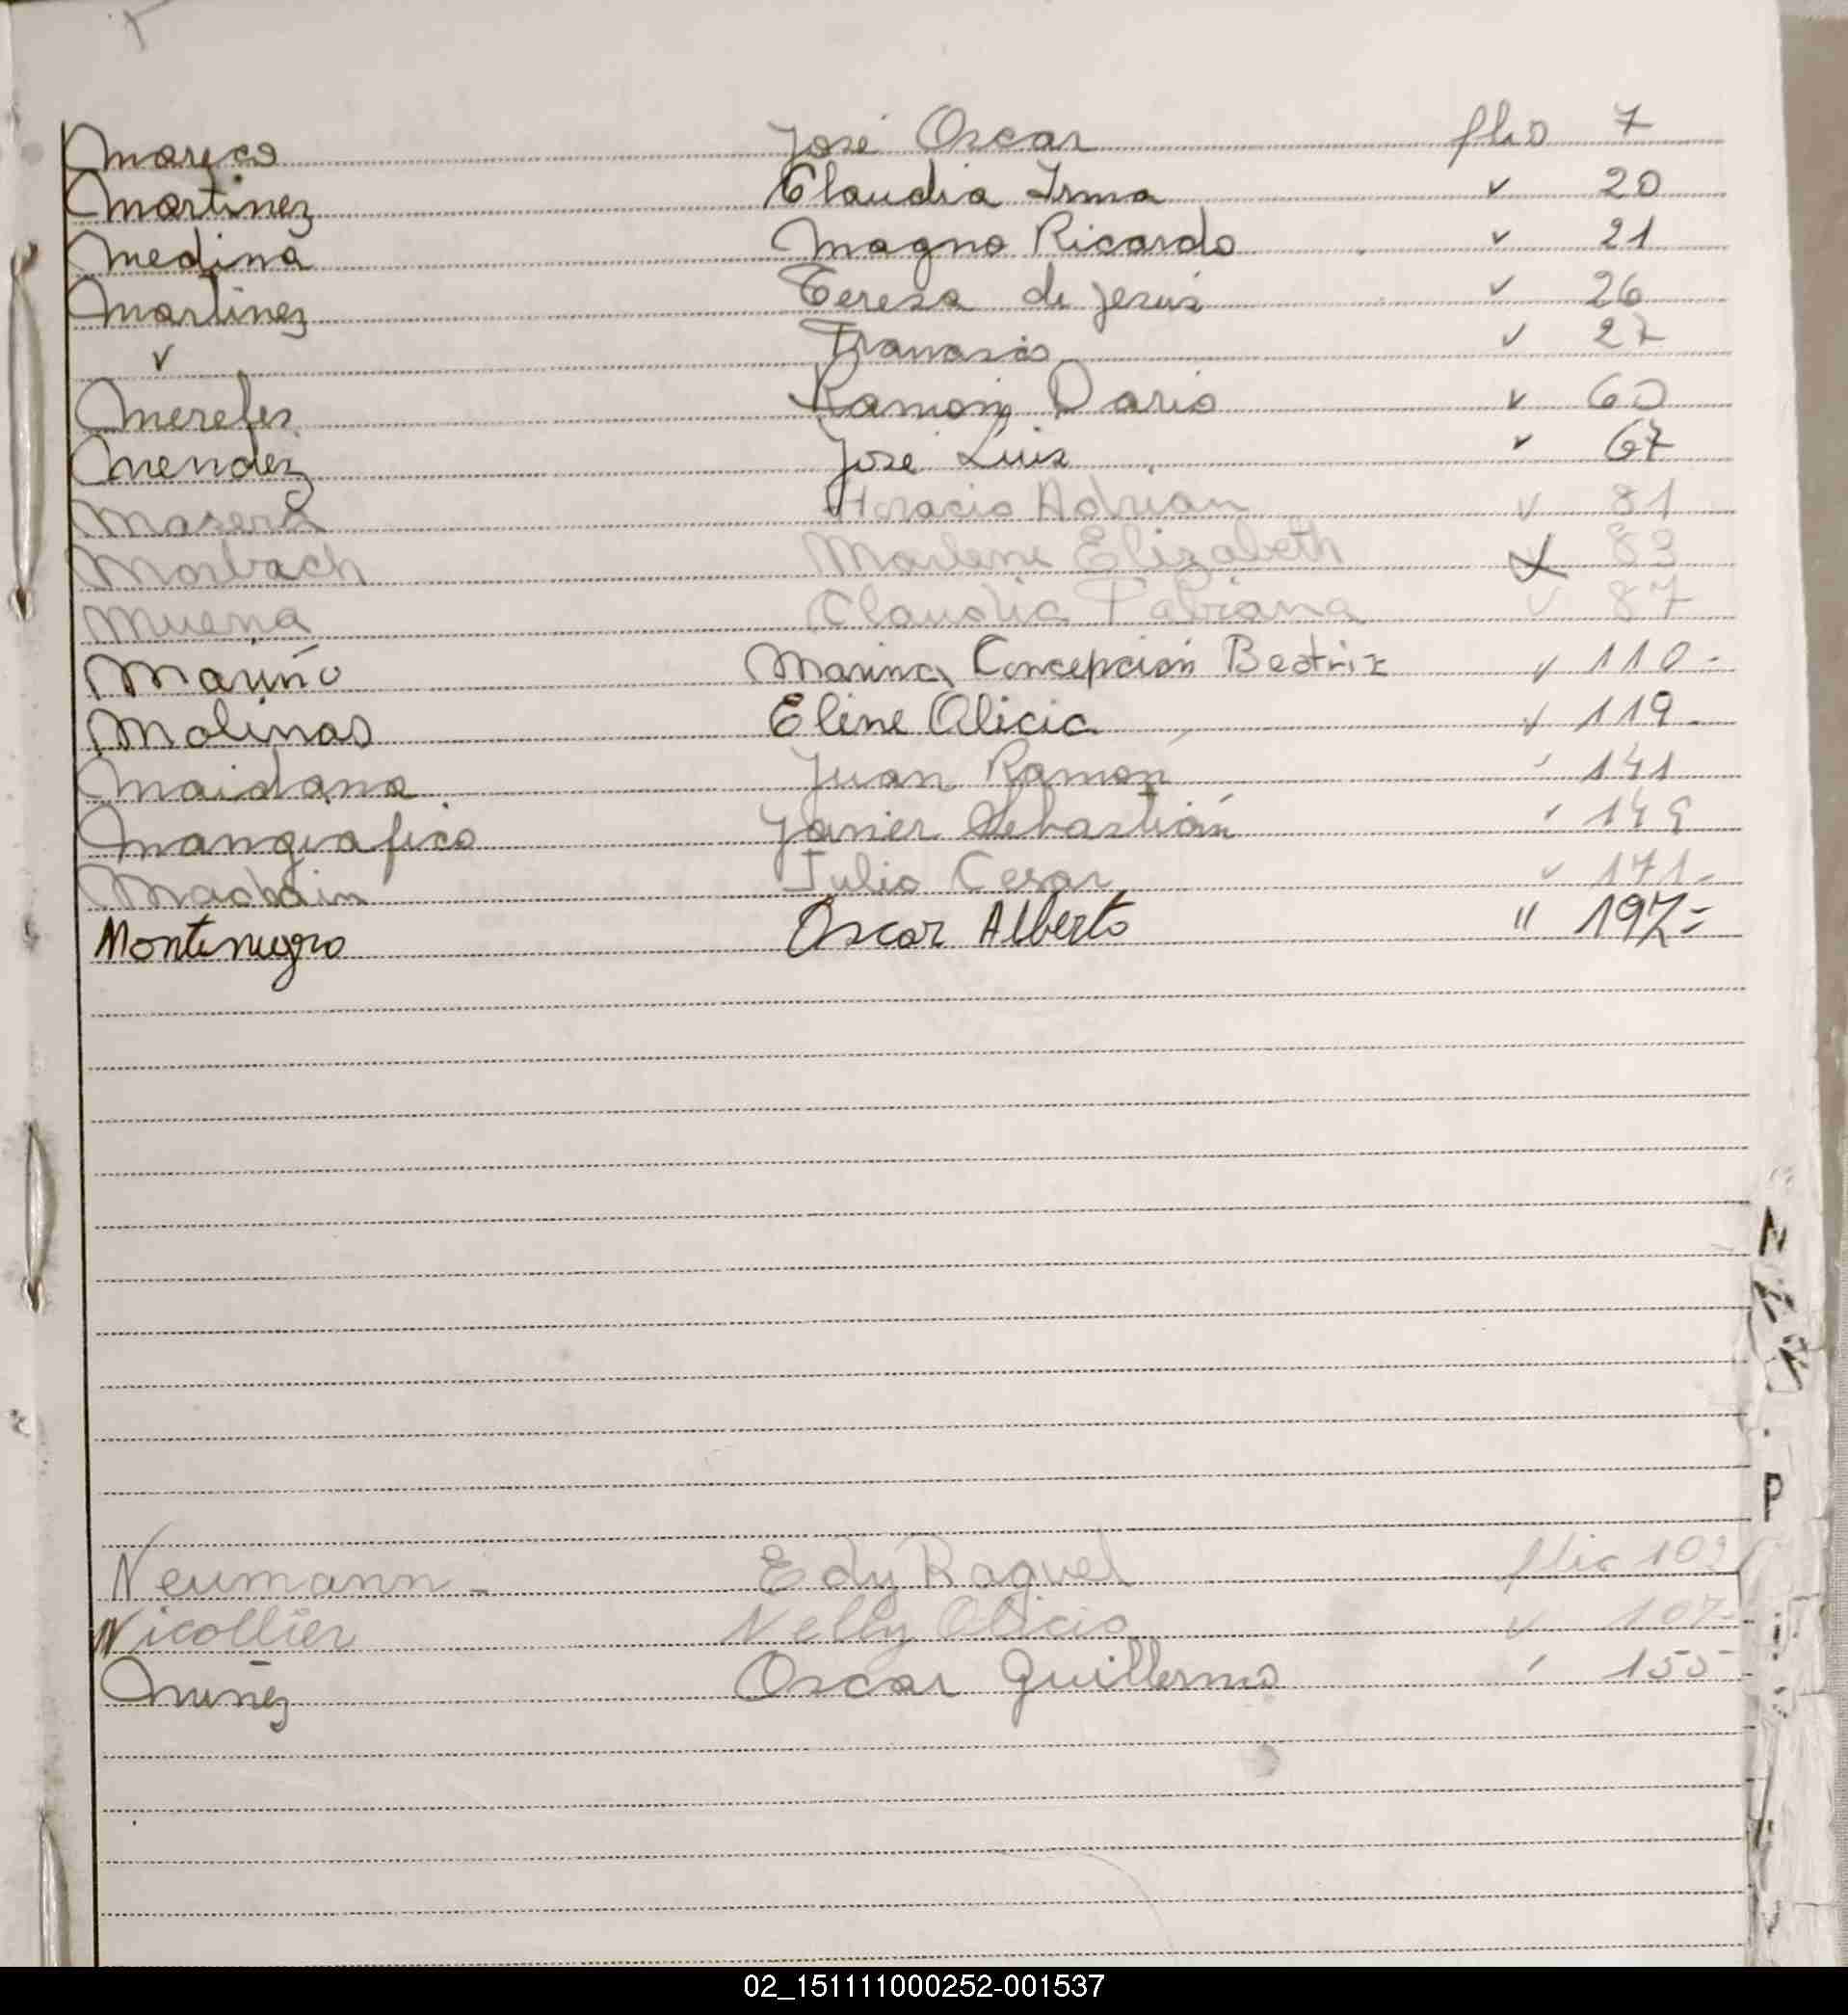 Mareco José Oscar flio 7
Martinez Claudia Irma v 20
Medina Magno Ricardo v 21
Martinez Teresa de Jesús v 26
v v 27
Mereles Ramón Dario v 60
Mendez José Luis v 67
Masera Horacio Adrian v 81
Morbach Marlene Elizabeth v 83
Muena Claudia Fabiana v 87
Mariño Marina Concepción Beatriz v 110-
Molinas Eline Alicia v 119-
Maidana Juan Ramón ' 141
Mangiafico Javier Sebastián ' 149
Machain Julio Cesar v 171-
Montenegro Oscar Alberto " 197=
Neumann- Edy Raquel flio
Nicollier Nelly Alicia v 107-
Nuñez Oscar Guillermo ' 155-
N
P
02_151111000252-001537